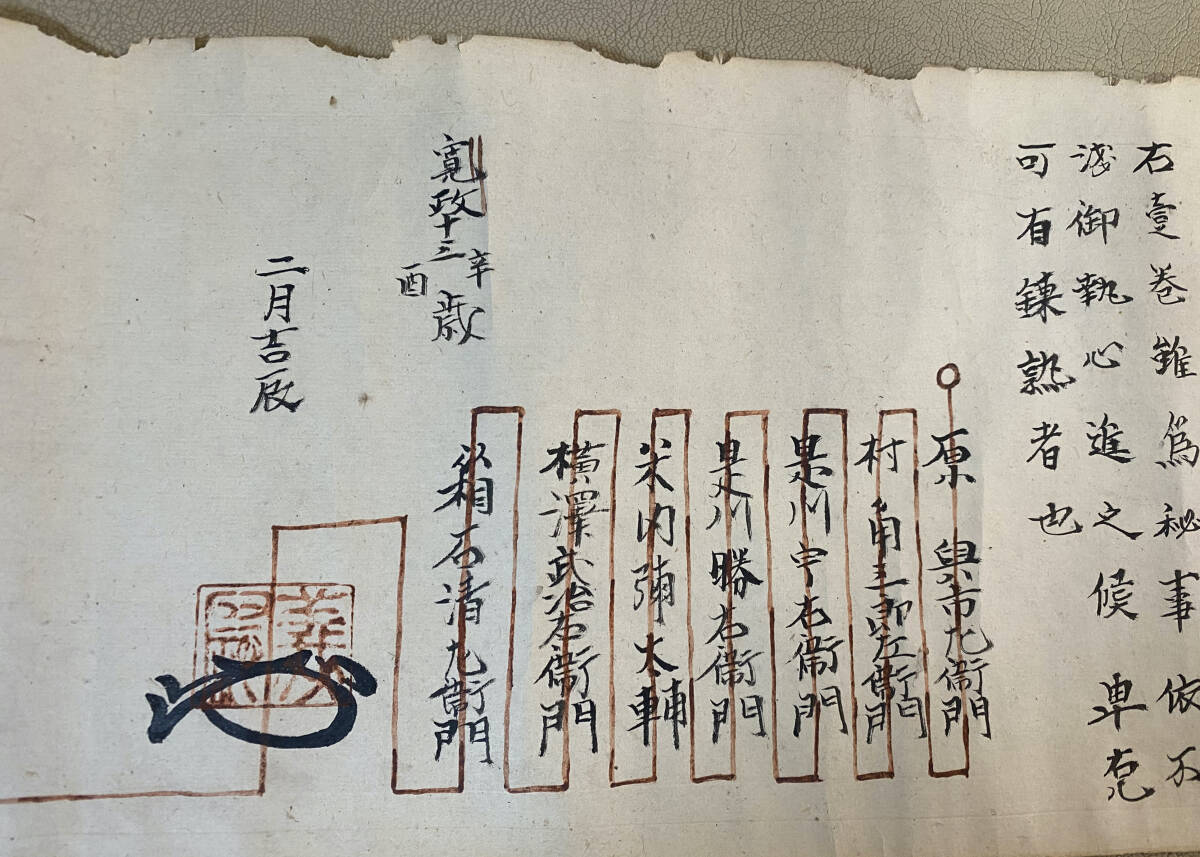 右壹巻雖為秘事依不
淺御執心進之候卑
可有錬熟者也
原 與市九衛門
村 角三郎左衛門
是川甲右衛門
是川勝右衛門
米内彌太輔
横澤武冶右衛門
箱石清九衛門
寛政十三辛酉歳
二月吉辰